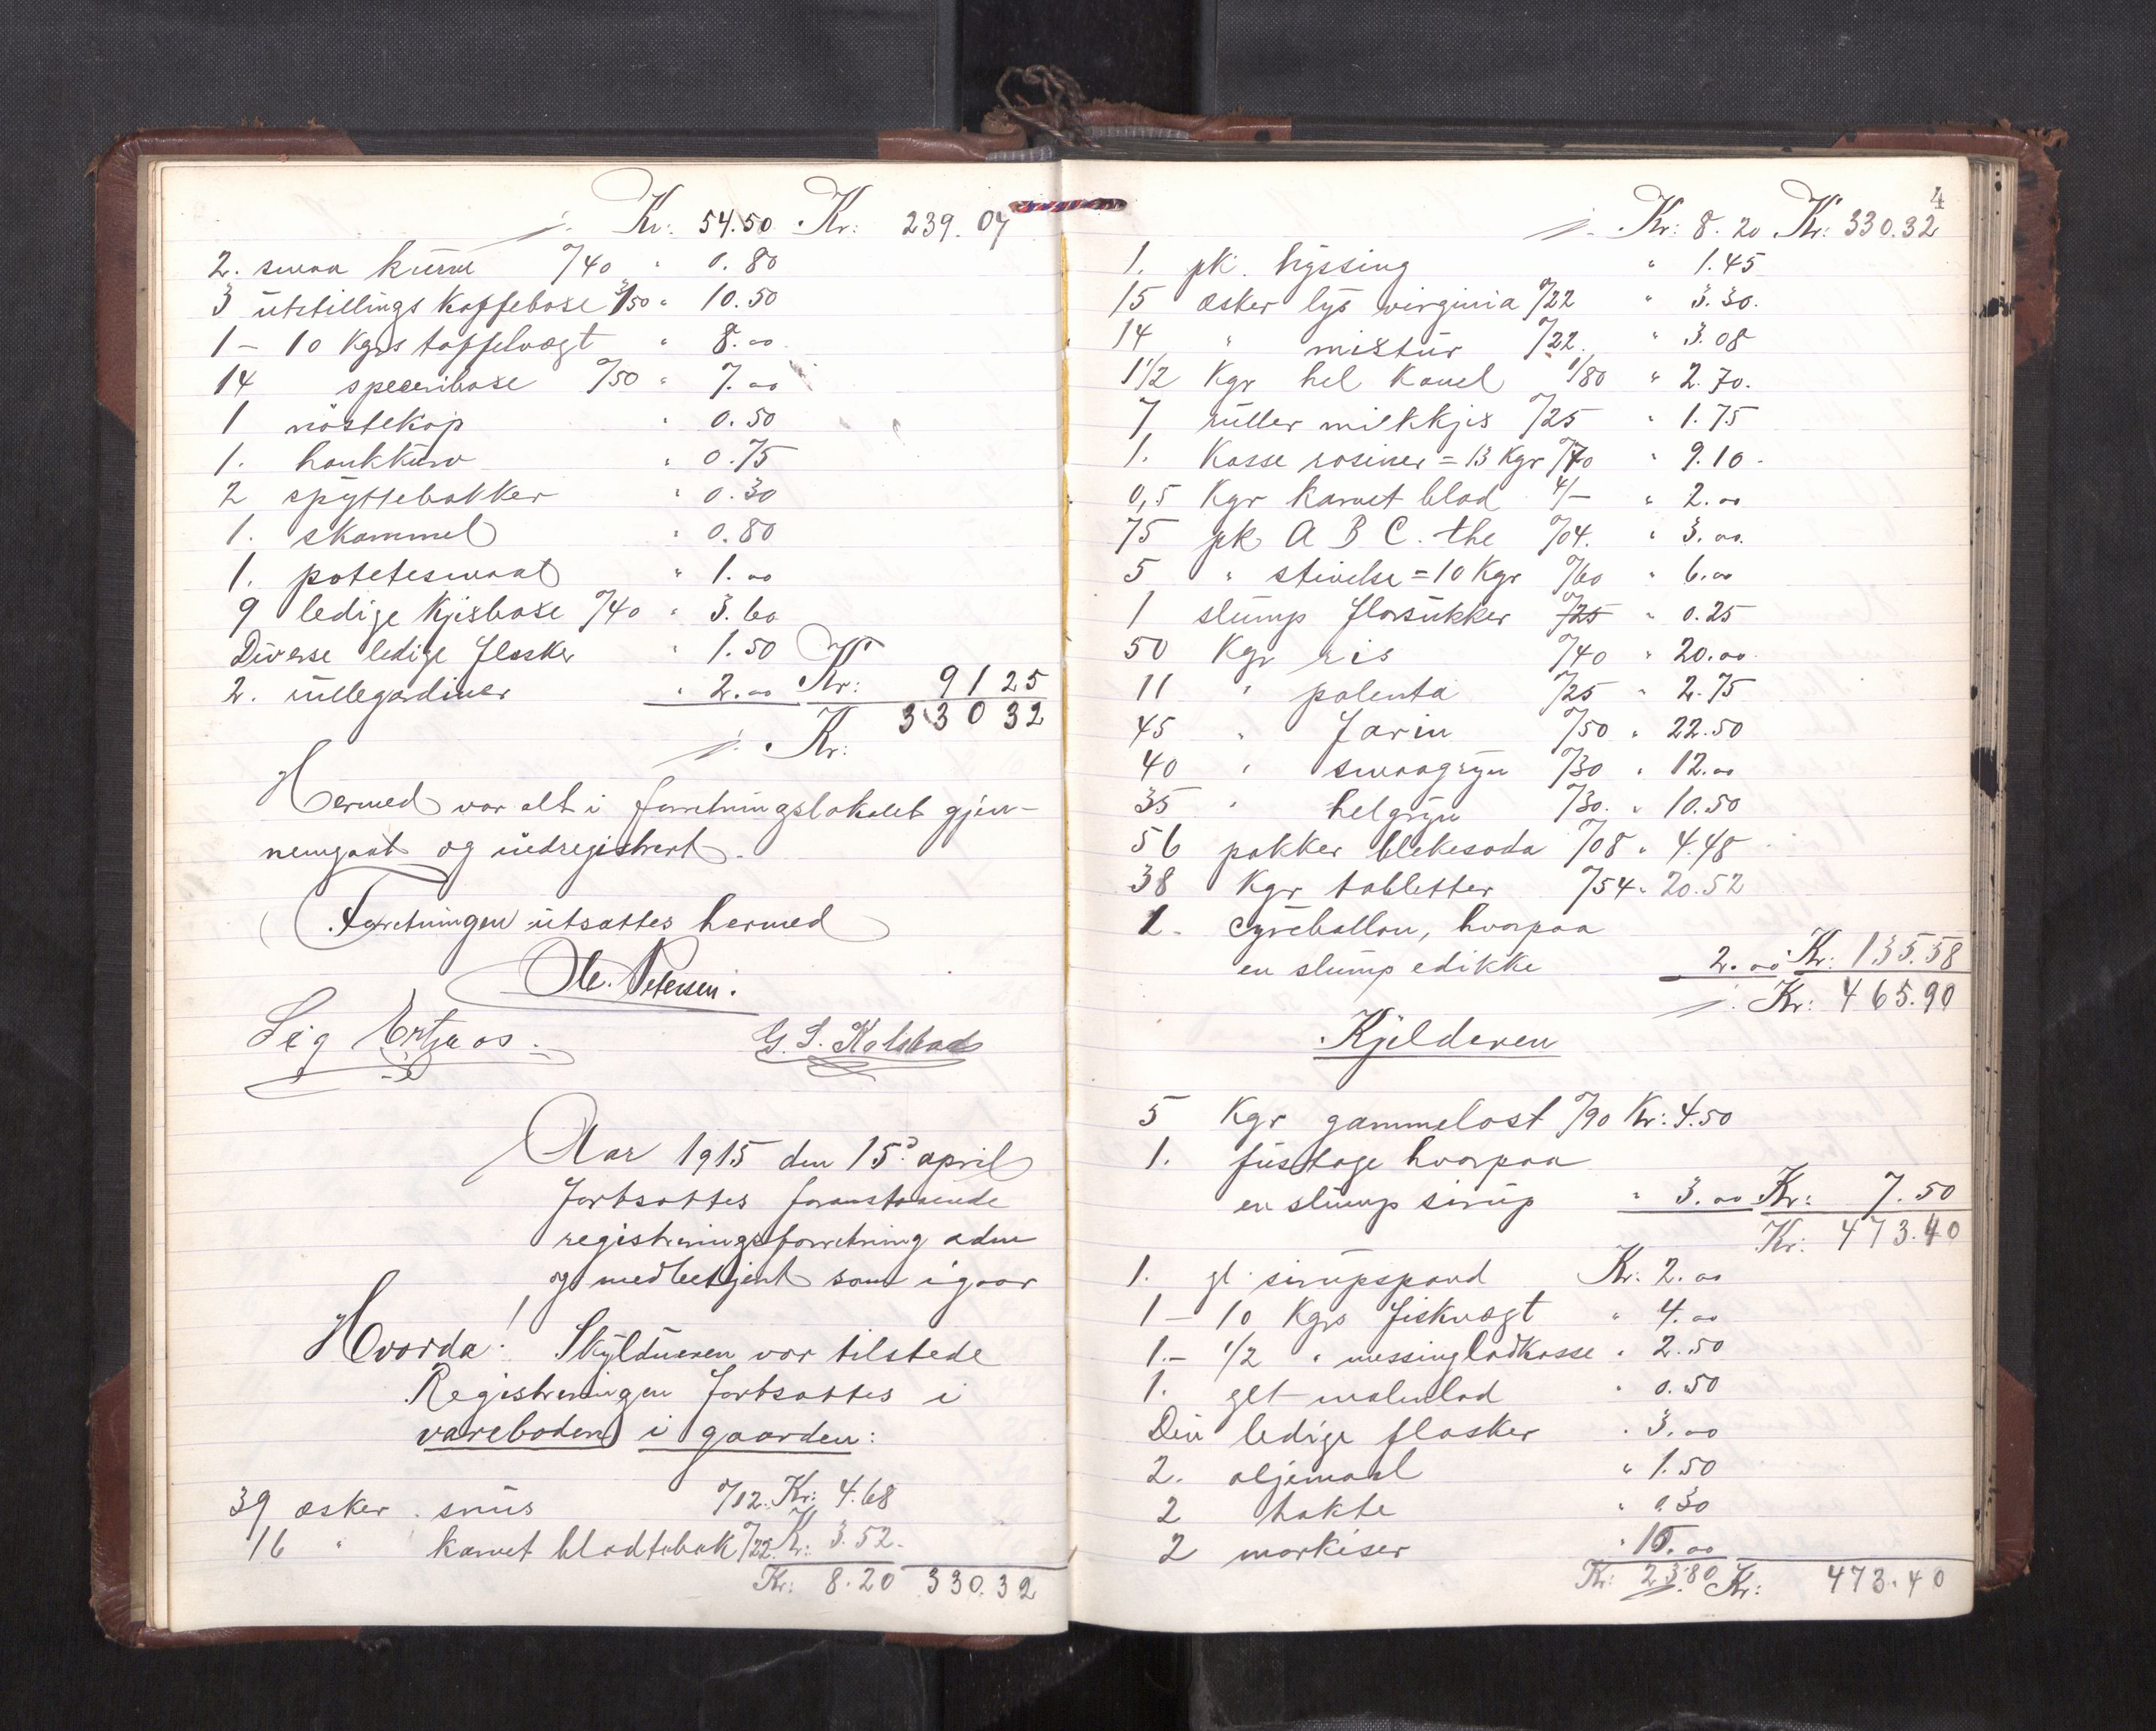 Kr: 54.50 Kr: 239.07
2. smaa kurve %40 " 0.80
3 utstillings kaffebokse 3/50 " 10.50
1 – 10 Kgrs taffelvægt " 8.00
14 speceribokse %50 " 7.00
1 nöstekop " 0.50
1. hankkurv " 0.75
2 spyttebakker " 0.30
1. skammel " 0.80
1. potetesmaal " 1.00
9 ledige kjeksbokse %40 " 3.60
Diverse ledige flasker " 1.50
2. rullegardiner " 2.00 Kr: 91 25
Kr: 330 32
Hermed var alt i forretningslokalet gjen-
nemgaat og indregistrert.
Forretningen utsattes hermed
Ole. Petersen.
Sig G. S. Kalstad
Aar 1915 den 15de april
fortsattes foranstaaende
registreringsforretning adm
og medbetjent som igaar
Hvorda! Skyldneren var tilstede
Registreringen fortsattes i
vareboden i gaarden:
39 æsker snus %12. Kr: 4.68
16 " karvet bladtobak %22. Kr: 3.52.
Kr: 8.20 330.32
4
Kr: 8.20 Kr: 330.32
1. pk. hyssing " 1.45
15 æsker lys virginia %22 " 3.30.
14 " mikstur %22. " 3.08
1 1/2 Kgr hel kanel 1/80 " 2.70.
7 ruller milkkjeks %25 " 1.75
1. kasse rosiner = 13 Kgr %70 " 9.10.
0,5 Kgr karvet blad 4/– " 2.00
75 pk A B C. the %04. " 3.00.
5 " stivelse = 10 Kgr %60 " 6.00
1 slump florsukker %25 " 0.25
50 Kgr ris %40 " 20.00
11 " polenta %25 " 2.75
45 " Farin %50 " 22.50
40 " smaagryn %30 " 12.00
35 " helgryn %30. " 10.50
56 pakker blekesoda %08 " 4.48
38 Kgr tabletter %54 " 20.52
1. Syreballon, hvorpaa
en slump edikke 2.00 Kr: 135.58
Kr: 465.90
Kjelderen
5 Kgr gammelost %90 Kr: 4.50
1. fustage hvorpaa
en slump sirup " 3.00 Kr: 7.50
Kr: 473.40
1. gl. sirupspand Kr: 2.00
1 – 10 Kgs fiskvægt " 4.00
1. – 1/2 " messinglodkasse " 2.50
1. glt malmlod " 0.50
Div ledige flasker " 3.00
2. oljemaal " 1.50
2 trakte " 0.30
2 markiser " 10.00
Kr: 23.80 Kr: 473.40